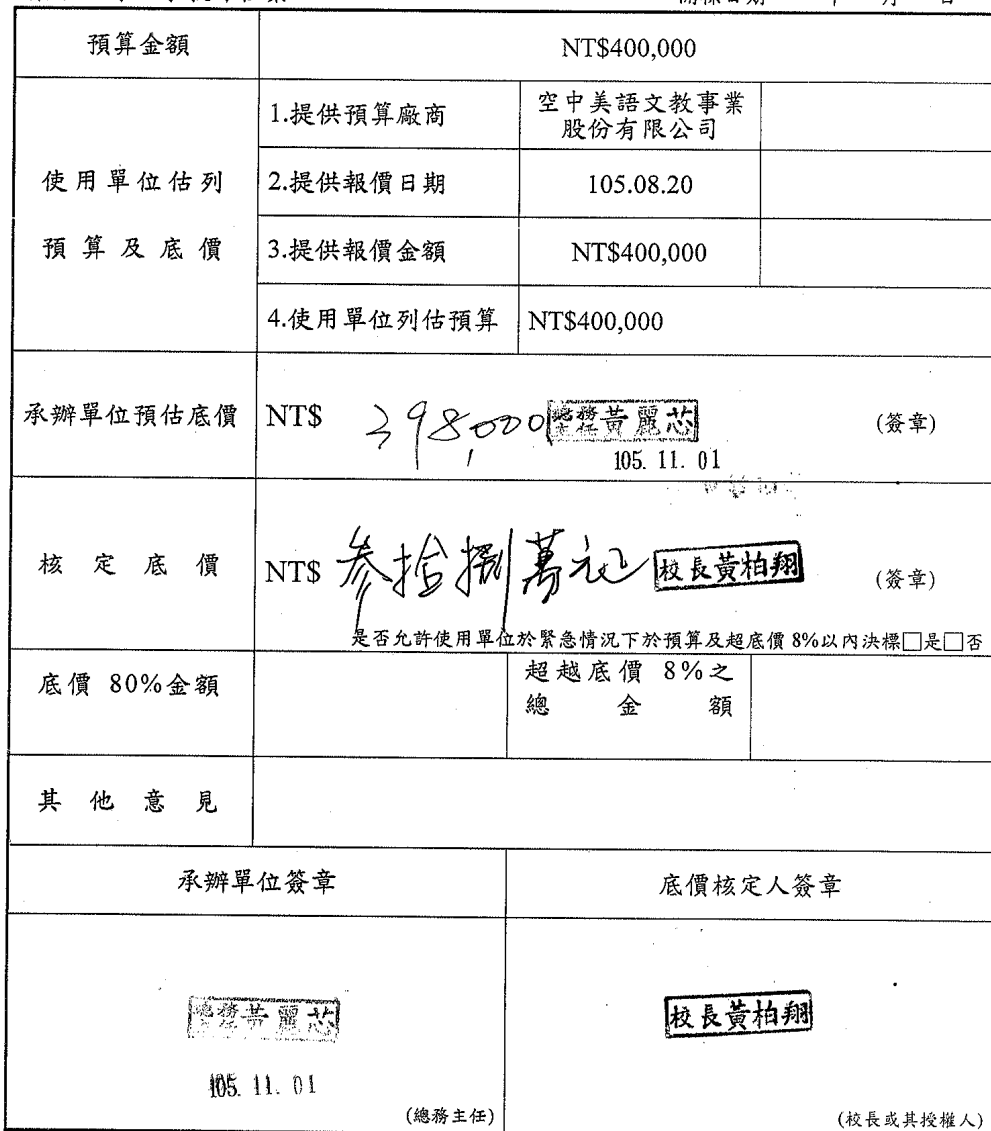 預算金額 NT$400,000
使用單位估列
預算及底價
1.提供預算廠商 空中美語文教事業
股份有限公司
2.提供報價日期 105.08.20
3.提供報價金額 NT$400,000
4.使用單位列估預算 NT$400,000
承辦單位預估底價 NT$ 398,000 總務主任黃麗芯 (簽章)
105. 11. 01
核定底價 NT$ 參拾捌萬元正 校長黃柏翔 (簽章)
是否允許使用單位於緊急情況下於預算及超底價 8%以內決標□是□否
底價 80%金額 超越底價 8%之
總金額
其他意見
承辦單位簽章 底價核定人簽章
總務主任黃麗芯 校長黃柏翔
105. 11. 01
(總務主任) (校長或其授權人)